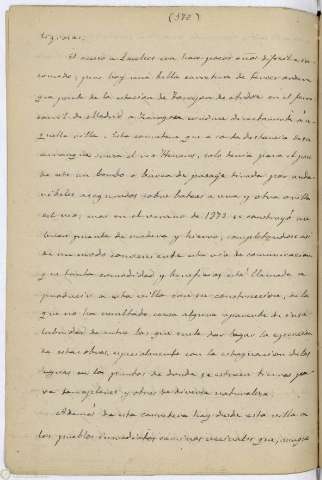 (572)
El acceso a Loeches era hace pocos años difícil e in-
comodo; pues hoy una bella carretera de tercer orden
que parte de la estacion de Torrejon de Ardoz en el ferro
carril de Madrid a Zaragoza conduce directamente á a-
quella villa. Esta carretera que a corta distancia de su
arranque cruza el rio Henares, solo tenia para el pa-
so este un bombo o barca de pasaje tirada por anda-
riveles asegurados sobre
el rio; mas en el verano de 1773 se construyó un
puente de madera y hierro, completandose asi
de un modo conveniente esta via de comunicacion
que tanta comodidad y beneficios está llamada a
producir a esta villa con su construccion, de la
que no ha resultado causa alguna aparente de insa-
lubridad de entre las que suele dar lugar la ejecucion
de estas obras, especialmente con la estagnacion de las
aguas en los puntos de donde se estraen tierras pa-
ra terraplenes y otros de diversa naturaleza.
Además de esta carretera hay desde esta villa a
los pueblos inmediatos caminos vecinales que, aunque